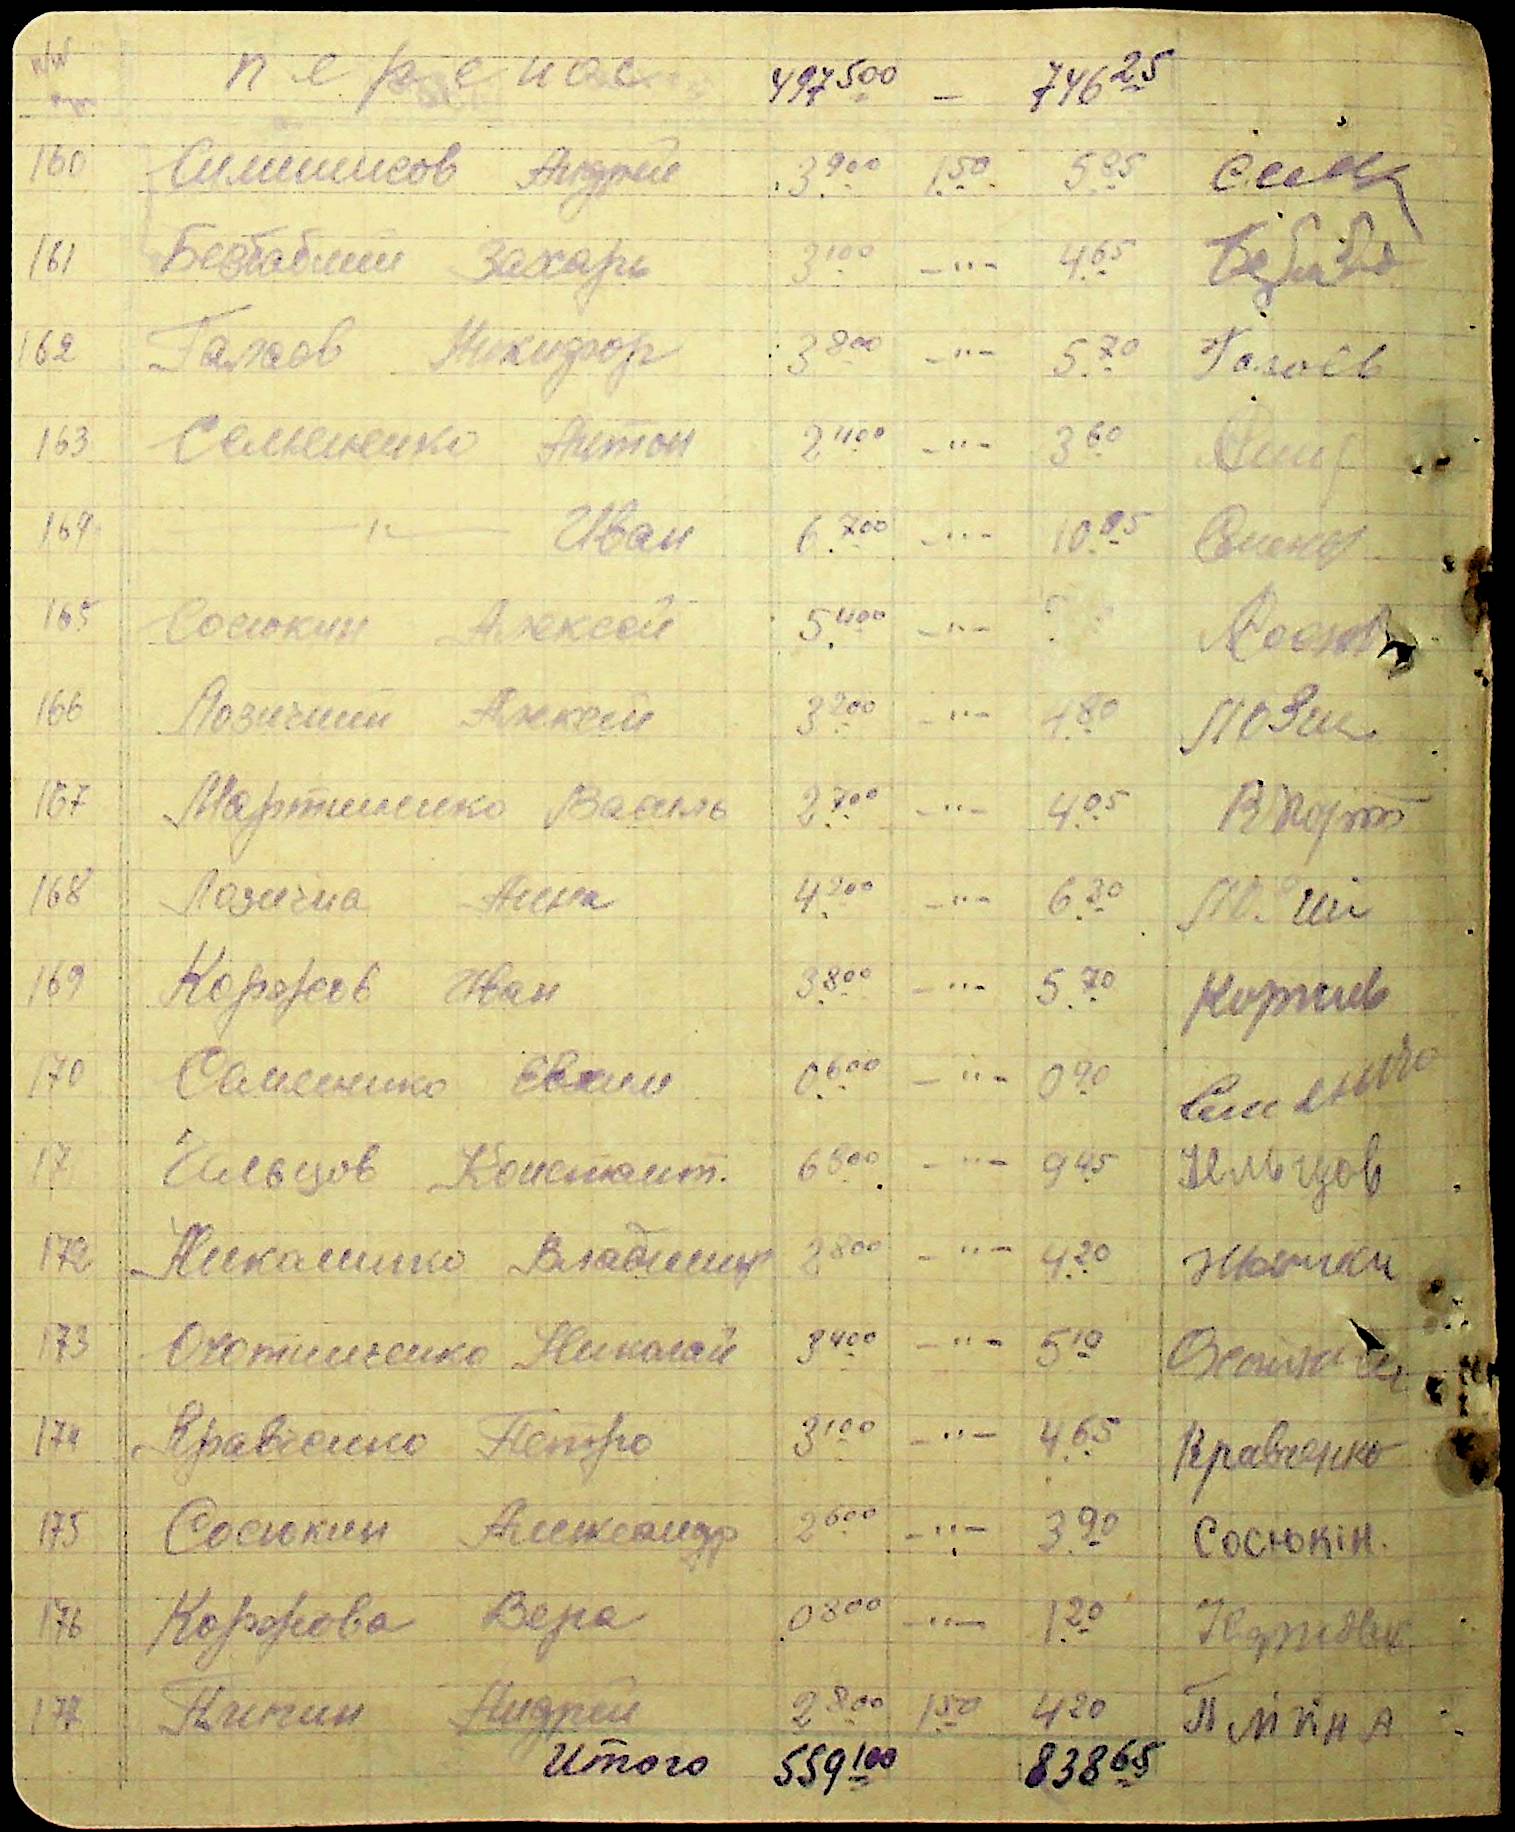 №№ перенос 497 500 — 746 25
160 Андрей 3 900 1 50 5 85
161 Безбаблий Захарь 3 100 —"— 4 65
162 Галаов Никифор 3 800 —"— 5 70
163 Семененко Антон 2 400 —"— 3 60
164 —"— Иван 6 700 —"— 10 05
165 Сосюкин Алексей 5 400 —"—
166 Лозичний Алексей 3 200 —"— 4 80 Лозич
167 Мартиненко Василь 2 700 —"— 4 05
168 Лозична Анна 4 200 —"— 6 30
169 Коржов Иван 3 800 —"— 5 70 Коржов
170 Семененко Евхим 0 600 —"— 0 90
17 Ильцов Констант. 6 300 —"— 9 45 Ильцов
172 Николенко Владимир 2 800 —"— 4 20
173 Охотниченко Николай 3 400 —"— 5 10
174 Кравченко Петро 3 100 —"— 4 65 Кравченко
175 Сосюкин Александр 2 600 —"— 3 90 Сосюкін.
176 Коржова Вера 0 800 —"— 1 20
177 Андрей 2 800 1 50 4 20
Итого 559 100 838 65